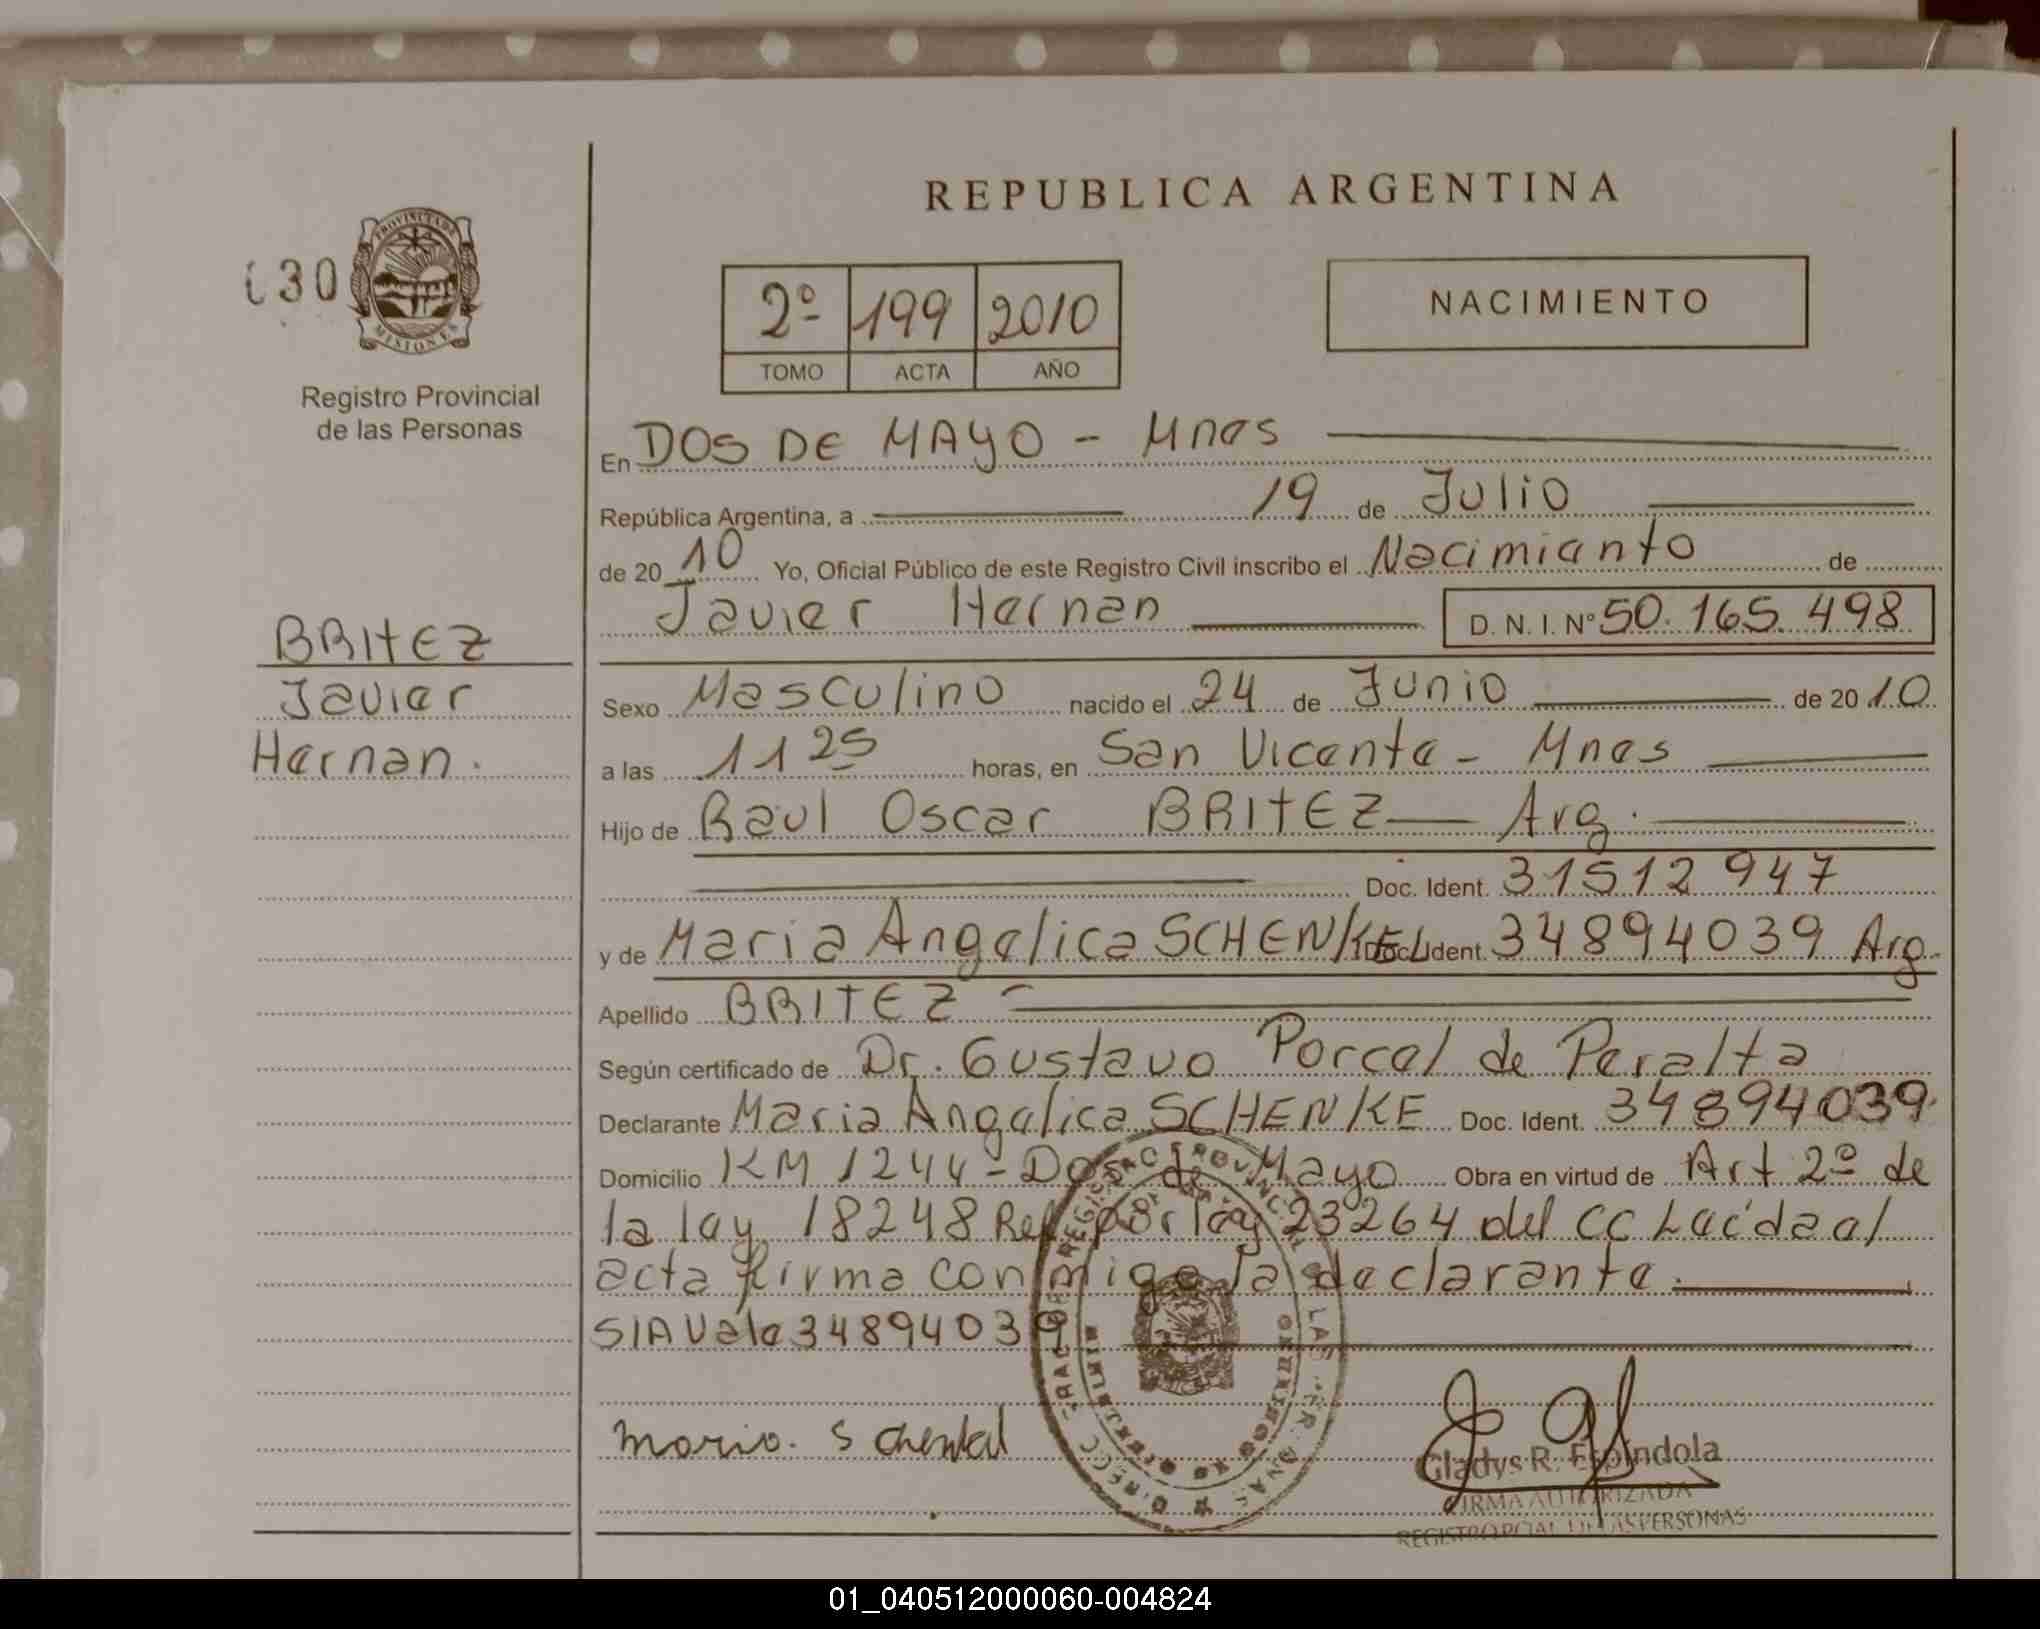 REPUBLICA ARGENTINA
030
PROVINCIA DE
MISIONES
Registro Provincial
de las Personas
2º 199 2010
TOMO ACTA AÑO
NACIMIENTO
En DOS DE MAYO - Mnes
República Argentina, a 19 de Julio
de 20 10 Yo, Oficial Público de este Registro Civil inscribo el Nacimiento de
Javier Hernan D. N. I. Nº 50.165.498
BRITEZ
Javier
Hernan.
Sexo Masculino nacido el 24 de Junio de 20 10
a las 11 25 horas, en San Vicente - Mnes
Hijo de Raul Oscar BRITEZ Arg.
Doc. Ident. 31512947
y de Maria Angelica SCHENKEL Doc. Ident. 34894039 Arg.
Apellido BRITEZ -
Según certificado de Dr. Gustavo Porcel de Peralta
Declarante Maria Angelica SCHENKE Doc. Ident. 34894039
Domicilio KM 1244 - Dos de Mayo Obra en virtud de Art 2º de
la ley 18248 Ref por ley 23264 del CC Leída al
acta firma conmigo la declarante.
S/A Vale 34894039
Maria. Schenkel
Gladys R. Espíndola
FIRMA AUTORIZADA
REGISTRO PCIAL DE LAS PERSONAS
01_040512000060-004824